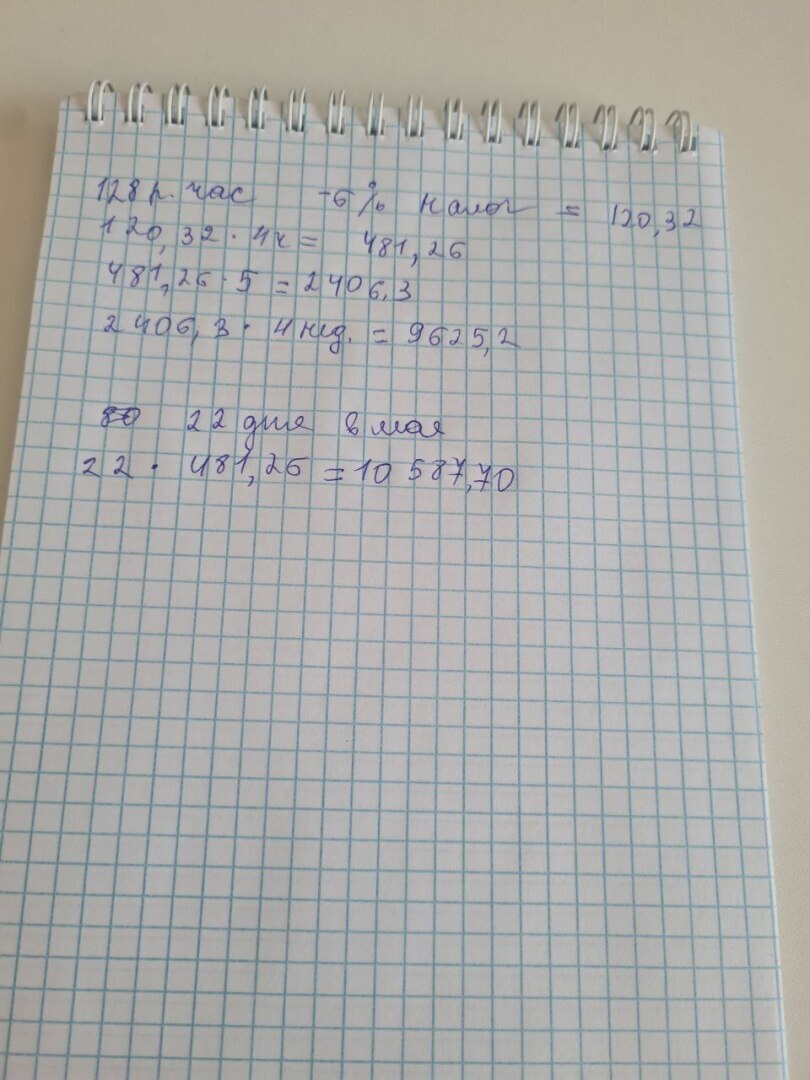 128 р. час -6% налог = 120,32
120,32 · 4ч = 481,26
481,26 · 5 = 2406,3
2406,3 · 4 нед. = 9625,2
80 22 дня в мая
22 · 481,26 = 10 587,70